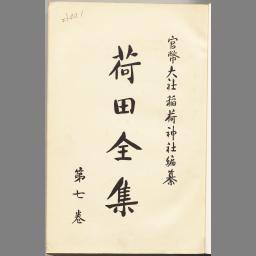 官幣大社稲荷神社編纂
荷田全集
第七巻